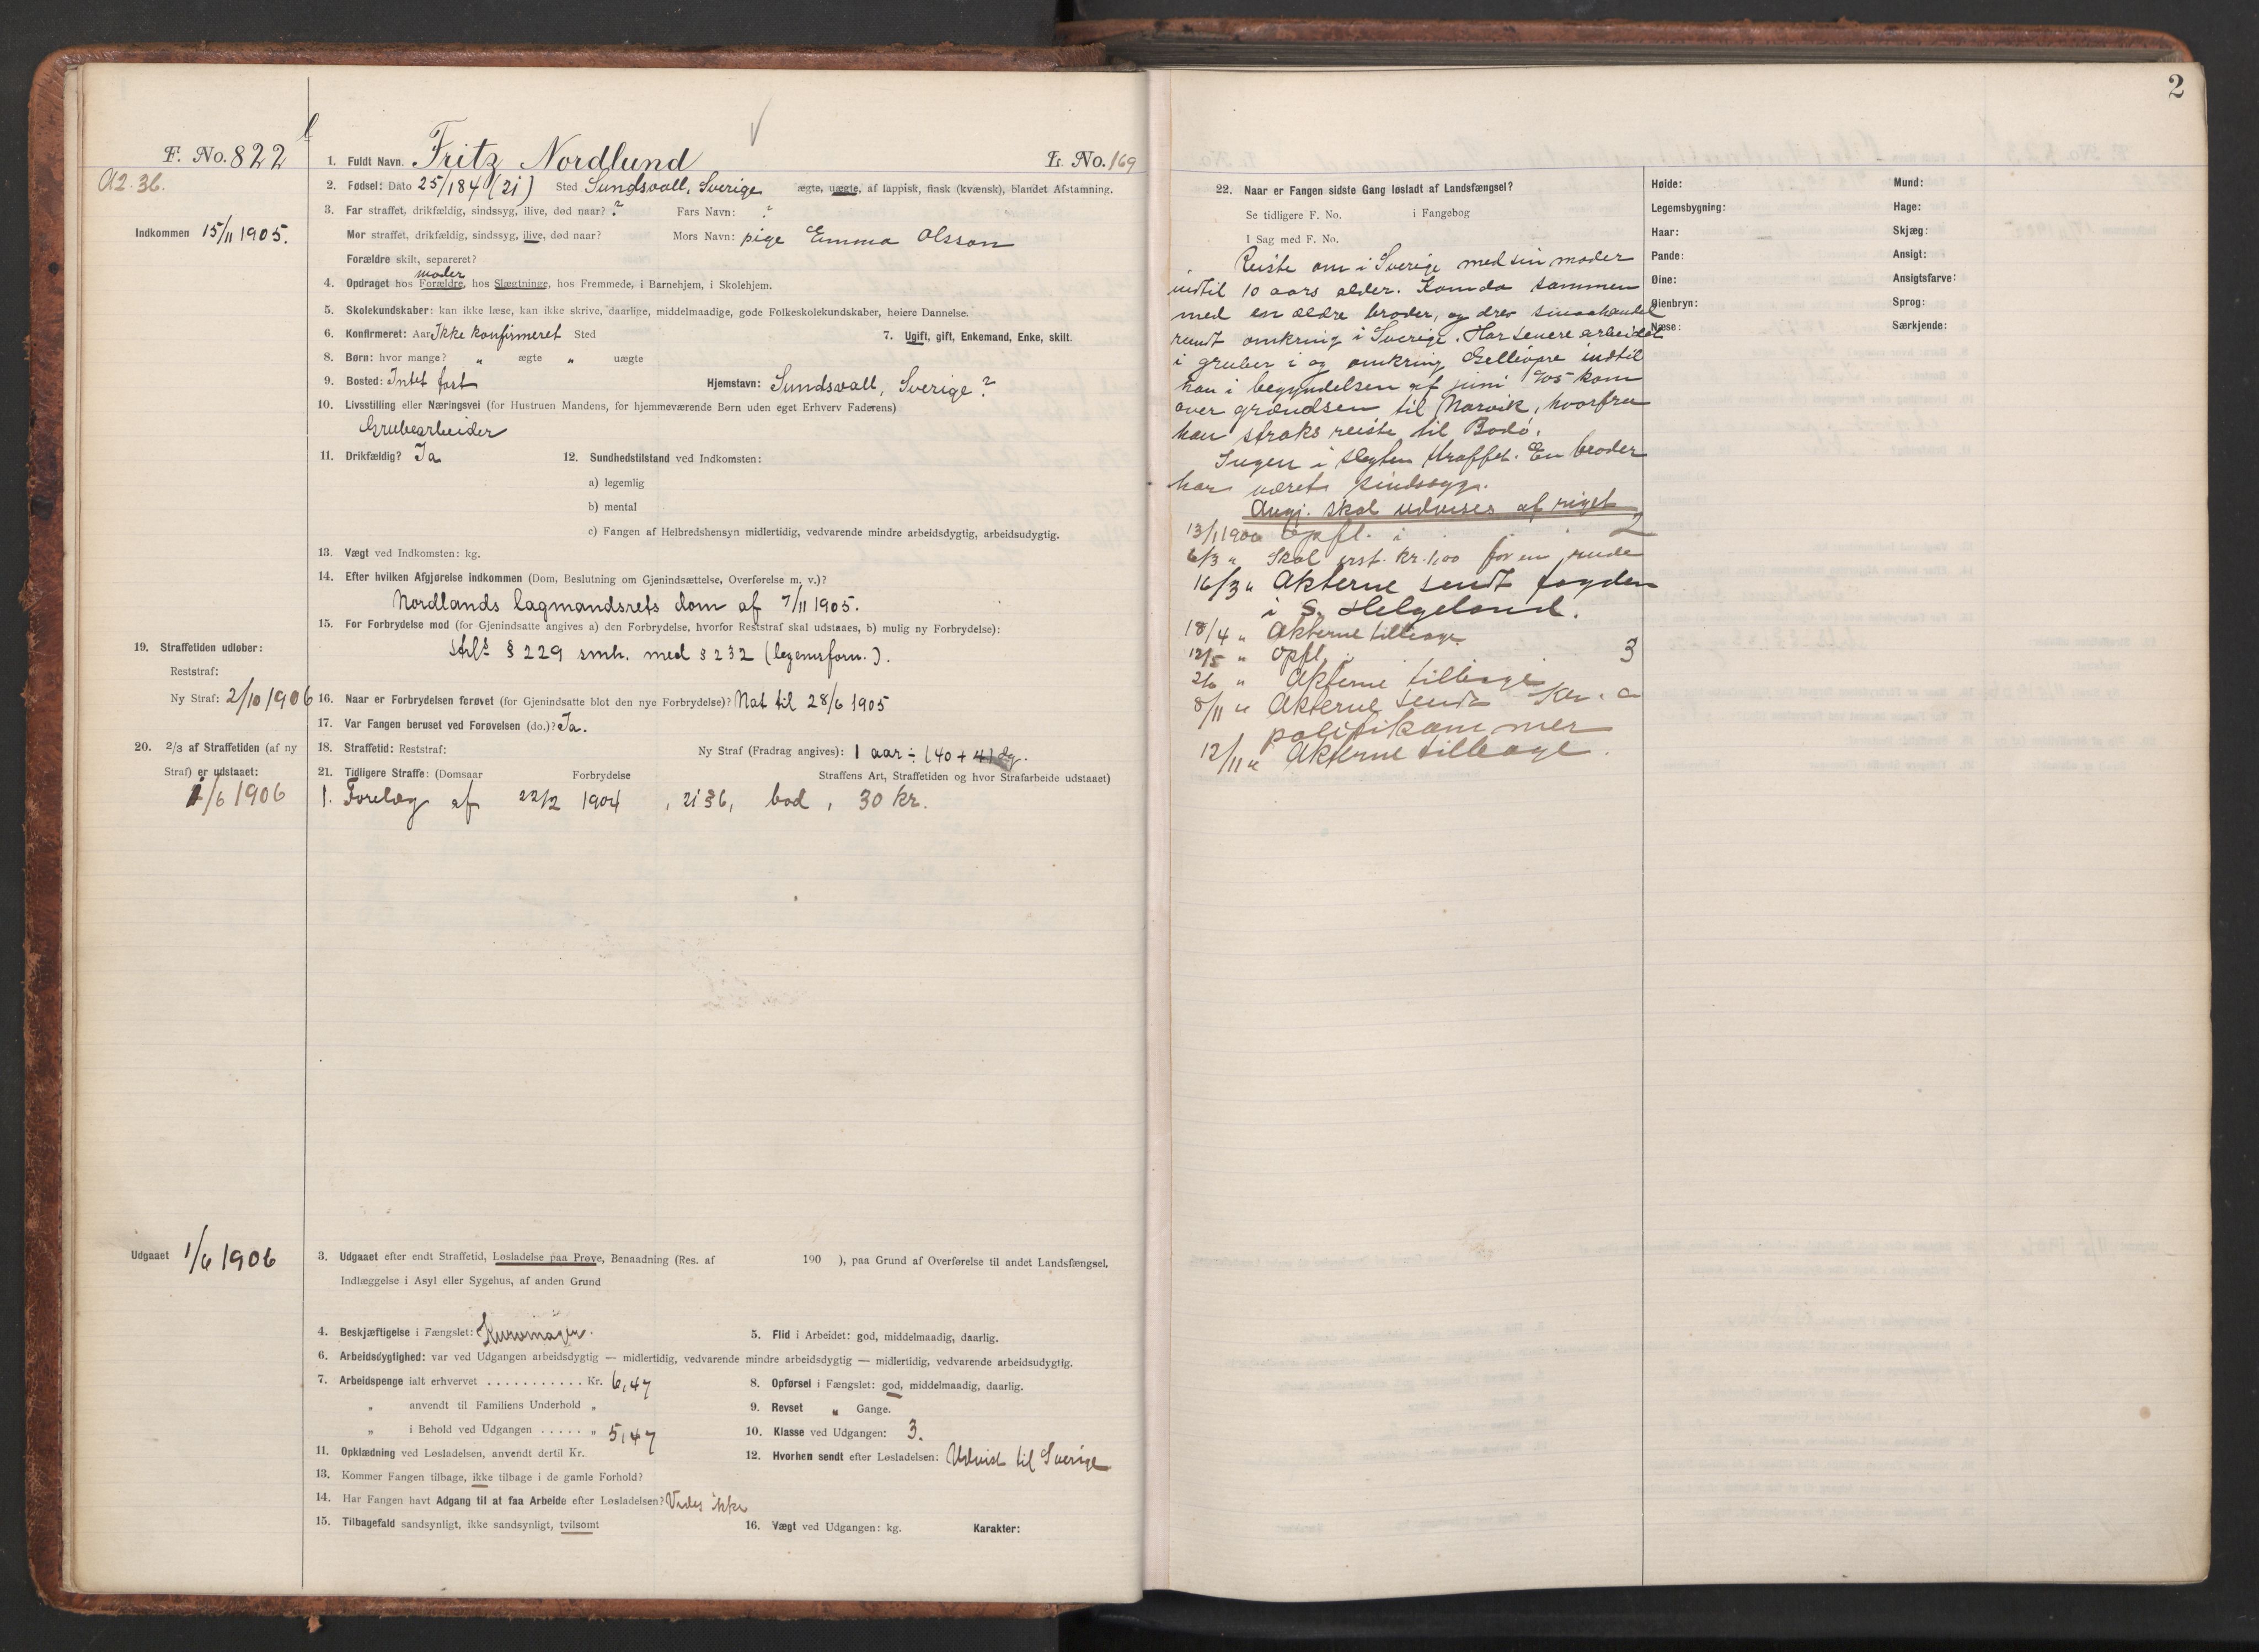 F. No. 822
A2.36.
Indkommen 15/11 1905.
1. Fuldt Navn. Fritz Nordlund L. No. 169
2. Fødsel: Dato 25/184 (21) Sted Sundsvall, Sverige ægte, uægte, af lappisk, finsk (kvænsk), blandet Afstamning.
3. Far straffet, drikfældig, sindssyg, ilive, død naar? ? Fars Navn: ?
Mor straffet, drikfældig, sindssyg, ilive, død naar? Mors Navn: pige Emma Olsson
Forældre skilt, separeret?
moder
4. Opdraget hos Forældre, hos Slægtninge, hos Fremmede, i Barnehjem, i Skolehjem.
5. Skolekundskaber: kan ikke læse, kan ikke skrive, daarlige, middelmaadige, gode Folkeskolekundskaber, høiere Dannelse.
6. Konfirmeret: Aar Ikke konfirmeret Sted 7. Ugift, gift, Enkemand, Enke, skilt.
8. Børn: hvor mange? " ægte " uægte
9. Bosted: Intet fast Hjemstavn: Sundsvall, Sverige?
10. Livsstilling eller Næringsvei (for Hustruen Mandens, for hjemmeværende Børn uden eget Erhverv Faderens)
Grubearbeider
11. Drikfældig? Ja 12. Sundhedstilstand ved Indkomsten:
a) legemlig
b) mental
c) Fangen af Helbredshensyn midlertidig, vedvarende mindre arbeidsdygtig, arbeidsudygtig.
13. Vægt ved Indkomsten: kg.
14. Efter hvilken Afgjørelse indkommen (Dom, Beslutning om Gjenindsættelse, Overførelse m. v.)?
Nordlands lagmandsrets dom af 7/11 1905.
15. For Forbrydelse mod (for Gjenindsatte angives a) den Forbrydelse, hvorfor Reststraf skal udstaaes, b) mulig ny Forbrydelse):
Strl's § 229 smh. med § 232 (legemsforn.).
19. Straffetiden udløber:
Reststraf:
Ny Straf: 2/10 1906
16. Naar er Forbrydelsen forøvet (for Gjenindsatte blot den nye Forbrydelse)? Nat til 28/6 1905
17. Var Fangen beruset ved Forøvelsen (do.)? Ja.
20. 2/3 af Straffetiden (af ny
Straf) er udstaaet:
1/6 1906
18. Straffetid: Reststraf: Ny Straf (Fradrag angives): 1 aar ÷ (40 + 4) dg.
21. Tidligere Straffe: (Domsaar Forbrydelse Straffens Art, Straffetiden og hvor Strafarbeide udstaaet)
1. Forelæg af 22/2 1904, bod, 30 kr.
Udgaaet 1/6 1906
3. Udgaaet efter endt Straffetid, Løsladelse paa Prøve, Benaadning (Res. af 190 ), paa Grund af Overførelse til andet Landsfængsel,
Indlæggelse i Asyl eller Sygehus, af anden Grund
4. Beskjæftigelse i Fængslet: Kurvmager. 5. Flid i Arbeidet: god, middelmaadig, daarlig.
6. Arbeidsdygtighed: var ved Udgangen arbeidsdygtig — midlertidig, vedvarende mindre arbeidsdygtig — midlertidig, vedvarende arbeidsudygtig.
7. Arbeidspenge ialt erhvervet ........... Kr. 6,47 8. Opførsel i Fængslet: god, middelmaadig, daarlig.
" anvendt til Familiens Underhold " 9. Revset " Gange.
" i Behold ved Udgangen ..... " 5,47 10. Klasse ved Udgangen: 3.
11. Opklædning ved Løsladelsen, anvendt dertil Kr. 12. Hvorhen sendt efter Løsladelsen: Udvist til Sverige
13. Kommer Fangen tilbage, ikke tilbage i de gamle Forhold?
14. Har Fangen havt Adgang til at faa Arbeide efter Løsladelsen? Vides ikke
15. Tilbagefald sandsynligt, ikke sandsynligt, tvilsomt 16. Vægt ved Udgangen: kg. Karakter:
2
22. Naar er Fangen sidste Gang løsladt af Landsfængsel?
Se tidligere F. No. i Fangebog
I Sag med F. No.
Reiste om i Sverige med sin moder
indtil 10 aars alder. Kom da sammen
med en ældre broder, og drev smaahandel
rundt omkring i Sverige. Har senere arbeidet
i gruber i og omkring Gellivare indtil
han i begyndelsen af juni 905 kom
over grændsen til Narvik, hvorfra
han straks reiste til Bodø.
Ingen i slegten straffet. En broder
har været sindssyg.
Angj. skal udvises af riget
13/1 1906 Opfl. i 2
6/3 " Skal erst. kr. 1,00 for en rude
16/3 " Akterne sendt fogden
i S. Helgeland.
18/4 " Akterne tilbage
12/5 " opfl. 3
2/6 " Akterne tilbage
8/11 " Akterne sendt Kr. a
politikammer
12/11 " Akterne tilbage.
Høide: Mund:
Legemsbygning: Hage:
Haar: Skjæg:
Pande: Ansigt:
Øine: Ansigtsfarve:
Øienbryn: Sprog:
Næse: Særkjende: